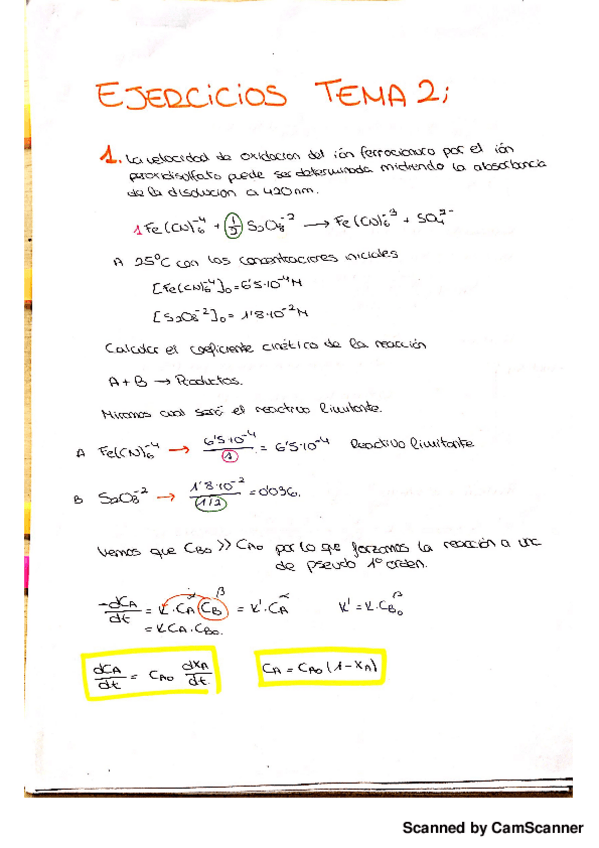 EJERCICIOS TEMA 2:
1. La velocidad de oxidacion del ión ferrocianuro por el ión
peroxidisulfato puede ser determinada midiendo la absorbancia
de la disolucion a 420nm.
1 Fe(CN)₆⁻⁴ + 1/2 S₂O₈⁻² → Fe(CN)₆⁻³ + SO₄²⁻
A 25ºC con las concentraciones iniciales
[Fe(CN)₆⁻⁴]₀ = 6'5·10⁻⁴M
[S₂O₈⁻²]₀ = 1'8·10⁻²M
Calcular el coeficiente cinético de la reacción
A + B → Productos.
Miramos cual será el reactivo limitante.
A Fe(CN)₆⁻⁴ → 6'5·10⁻⁴/1 = 6'5·10⁻⁴ Reactivo limitante
B S₂O₈⁻² → 1'8·10⁻²/1/2 = 0'036.
Vemos que CB₀ >> CA₀ por lo que forzamos la reacción a una
de pseudo 1º orden.
-dCA/dt = K·CA^α CB^β = K'·CA^α K' = K·CB₀^β
= K CA·CB₀.
dCA/dt = CA₀ dXA/dt. CA = CA₀(1-XA)
Scanned by CamScanner